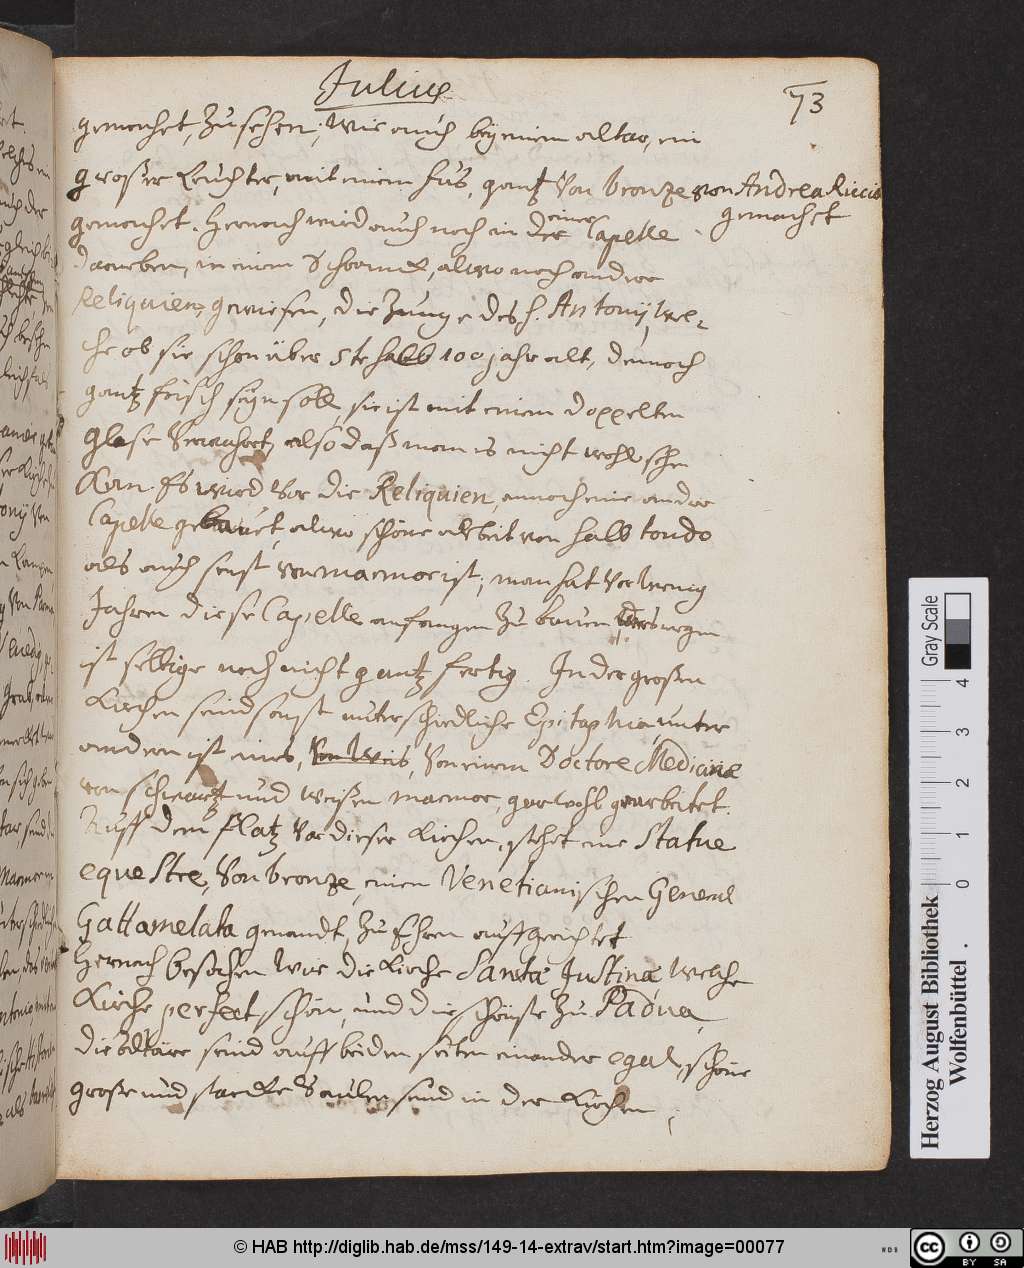 Julius
73
gemachet, zu sehen, wie auch bey einem altar, ein
großer Leuchter, mit einem fus, gantz von bronze von Andrea Riccio
gemacht
gemachet. Hernach wird auch noch in der einer Capelle
darneben, in einem Schranck, alwo noch andere
Reliquien, gewiesen, die Zunge des h. Antonij, wel-
che ob sie schon über 5te halb 100 jahr alt, dennoch
gantz frisch seyn soll, sie ist mit einem doppelten
glase verwahret, also daß man es nicht wohl sehen
kan. Es wird vor die Reliquien, annoch eine andere
Capelle gebauet, alwo schöne arbeit von halb tondo
als auch sonst, von marmor ist; man hat vor wenig
Jahren diese Capelle anfangen zu bauen
ist selbige noch nicht gantz fertig. In der großen
Kirchen seind sonst unterschiedliche Epitaphia, unter
andern ist eines, von einem Doctore Medicinæ
von schwartz und weißen marmor, gar wohl gearbeitet.
Auff dem platz vor dieser Kirchen, stehet eine Statue
equestre, von bronze, einem Venetianischen General
Gattamelata genandt, zu Ehren auffgerichtet
Hernach besahen wir die Kirche Santa Justina welche
Kirche perfect schön, und die schönste zu Padua,
die altäre seind auff beiden seiten einander egal, schöne
große und starcke Säulen seind in der Kirchen,
Gray Scale
0 1 2 3 4
Herzog August Bibliothek
Wolfenbüttel
© HAB http://diglib.hab.de/mss/149-14-extrav/start.htm?image=00077
cc BY SA